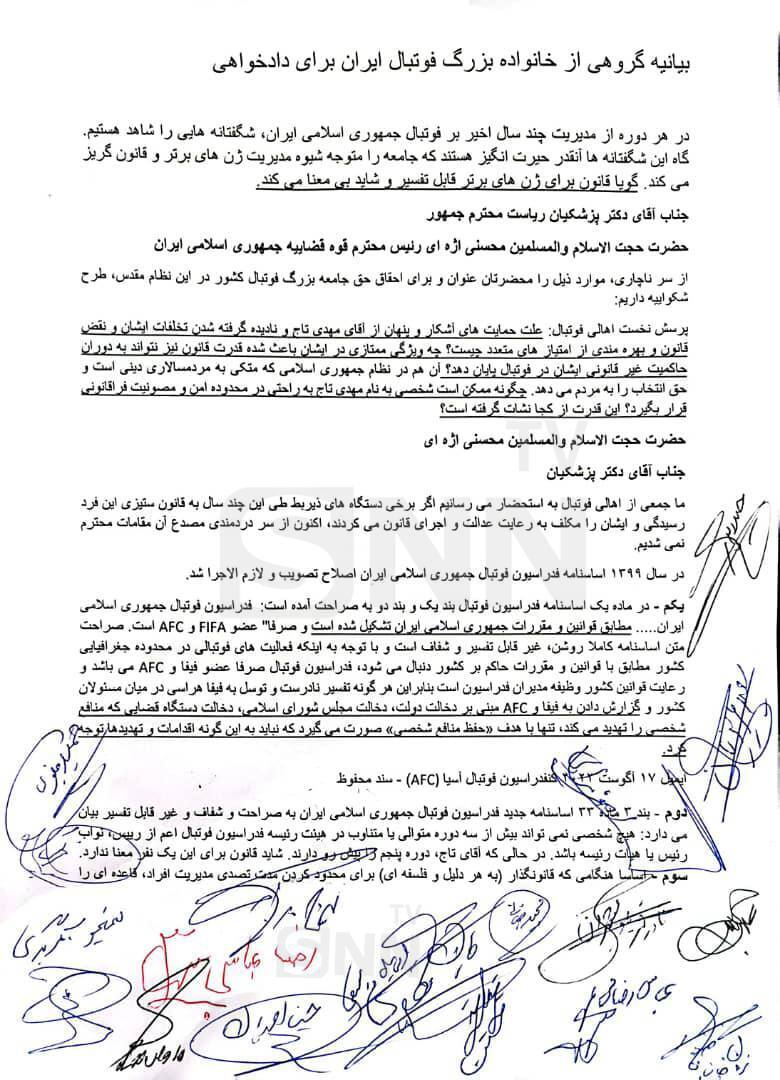 بیانیه گروهی از خانواده بزرگ فوتبال ایران برای دادخواهی
در هر دوره از مدیریت چند سال اخیر بر فوتبال جمهوری اسلامی ایران، شگفتانه هایی را شاهد هستیم.
گاه این شگفتانه ها آنقدر حیرت انگیز هستند که جامعه را متوجه شیوه مدیریت ژن های برتر و قانون گریز
می کند. گویا قانون برای ژن های برتر قابل تفسیر و شاید بی معنا می کند.
جناب آقای دکتر پزشکیان ریاست محترم جمهور
حضرت حجت الاسلام والمسلمین محسنی اژه ای رئیس محترم قوه قضاییه جمهوری اسلامی ایران
از سر ناچاری، موارد ذیل را محضرتان عنوان و برای احقاق حق جامعه بزرگ فوتبال کشور در این نظام مقدس، طرح
شکواییه داریم:
پرسش نخست اهالی فوتبال: علت حمایت های آشکار و پنهان از آقای مهدی تاج و نادیده گرفته شدن تخلفات ایشان و نقض
قانون و بهره مندی از امتیاز های متعدد چیست؟ چه ویژگی ممتازی در ایشان باعث شده قدرت قانون نیز نتواند به دوران
حاکمیت غیر قانونی ایشان در فوتبال پایان دهد؟ آن هم در نظام جمهوری اسلامی که متکی به مردمسالاری دینی است و
حق انتخاب را به مردم می دهد. چگونه ممکن است شخصی به نام مهدی تاج به راحتی در محدوده امن و مصونیت فراقانونی
قرار بگیرد؟ این قدرت از کجا نشات گرفته است؟
حضرت حجت الاسلام والمسلمین محسنی اژه ای
جناب آقای دکتر پزشکیان
ما جمعی از اهالی فوتبال به استحضار می رسانیم اگر برخی دستگاه های ذیربط طی این چند سال به قانون ستیزی این فرد
رسیدگی و ایشان را مکلف به رعایت عدالت و اجرای قانون می کردند، اکنون از سر دردمندی مصدع آن مقامات محترم
نمی شدیم.
در سال ۱۳۹۹ اساسنامه فدراسیون فوتبال جمهوری اسلامی ایران اصلاح تصویب و لازم الاجرا شد.
یکم - در ماده یک اساسنامه فدراسیون فوتبال بند یک و بند دو به صراحت آمده است: فدراسیون فوتبال جمهوری اسلامی
ایران..... مطابق قوانین و مقررات جمهوری اسلامی ایران تشکیل شده است و صرفا" عضو FIFA و AFC است. صراحت
متن اساسنامه کاملا روشن، غیر قابل تفسیر و شفاف است و با توجه به اینکه فعالیت های فوتبالی در محدوده جغرافیایی
کشور مطابق با قوانین و مقررات حاکم بر کشور دنبال می شود، فدراسیون فوتبال صرفا عضو فیفا و AFC می باشد و
رعایت قوانین کشور وظیفه مدیران فدراسیون است بنابراین هر گونه تفسیر نادرست و توسل به فیفا هراسی در میان مسئولان
کشور و گزارش دادن به فیفا و AFC مبنی بر دخالت دولت، دخالت مجلس شورای اسلامی، دخالت دستگاه قضایی که منافع
شخصی را تهدید می کند، تنها با هدف «حفظ منافع شخصی» صورت می گیرد که نباید به این گونه اقدامات و تهدیدها توجه
کرد.
ایمیل ۱۷ آگوست ۲۰۲۲ کنفدراسیون فوتبال آسیا (AFC) - سند محفوظ
دوم - بند ۳ ماده ۳۳ اساسنامه جدید فدراسیون فوتبال جمهوری اسلامی ایران به صراحت و شفاف و غیر قابل تفسیر بیان
می دارد: هیچ شخصی نمی تواند بیش از سه دوره متوالی یا متناوب در هیئت رئیسه فدراسیون فوتبال اعم از رییس، نواب
رئیس یا هیأت رئیسه باشد. در حالی که آقای تاج، دوره پنجم را پیش رو دارند. شاید قانون برای این یک نفر معنا ندارد.
سوم - اساسا هنگامی که قانونگذار (به هر دلیل و فلسفه ای) برای محدود کردن مدت تصدی مدیریت افراد، قاعده ای را
SNN TV
رضا عباسی
حسین احمدی
SNN TV